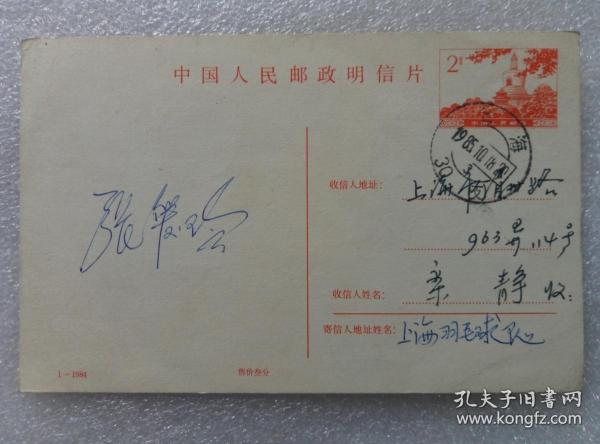 中国人民邮政明信片
2分
中国人民邮政
海
1985.10.18.20
30
收信人地址：
上海
963弄114号
收信人姓名：
静 收：
寄信人地址姓名：
上海羽毛球队
张爱玲
1－1984
售价叁分
孔夫子旧书网
kongfz.com